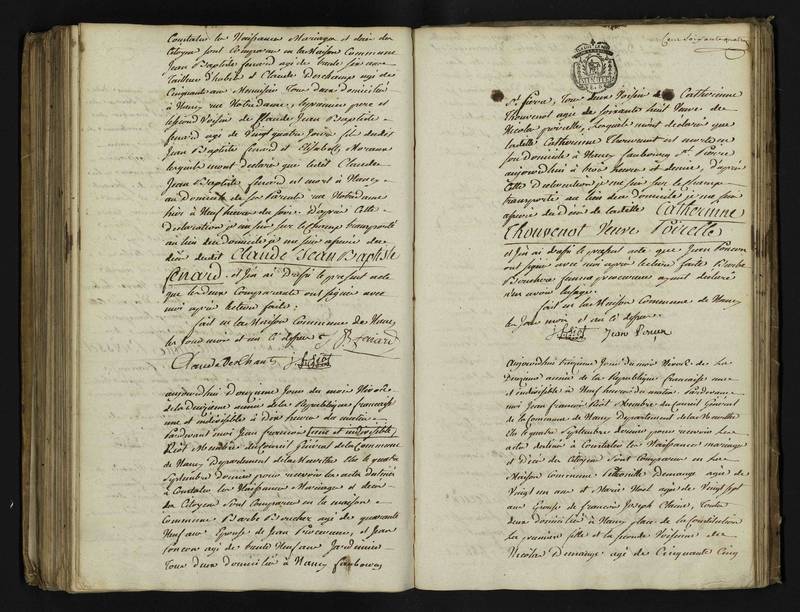 Constater les Naissance Mariages et décès des
Citoyens sont Comparus en la Maison Commune
Jean Baptiste Finard agé de trente six ans
Tailleur d'habits et Claude Deschamps agé de
Cinquante ans Menuisier Tous deux domiciliés
à Nancy rue Notre Dame, le premier pere et
le second Voisin de Claude Jean Baptiste
finard agé de Vingt quatre jours fils dudit
Jean Baptiste finard et Elisabeth
lesquels mont déclarés que ledit Claude
Jean Baptiste finard est mort à Nancy
au domicile de ses Parents rue Notre Dame
hier à Neuf heures du soir. D'après Cette
déclaration je me suis sur le champ transporté
au lieu du domicile je me suis assuré du
décès dudit Claude Jean Baptiste
finard. et j'en ai Dressé le présent acte
que les deux Comparants ont signés avec
moi après lecture faite.
fait en la Maison Commune de Nancy
les jour mois et an Ci dessus
Claude Deschamps
aujourd'hui Douzieme jour du mois Nivose
de la Deuxieme année de la République française
une et indivisible à Dix heures du matin
Pardevant moi Jean francois une et indivisible
Membre du Conseil Général de la Commune
de Nancy Departement de la Meurthe Elu le quatre
Septembre dernier pour recevoir les actes destinés
à Constater les Naissance Mariages et décès
des Citoyens Sont Comparus en la maison
Commune Barbe Boucher agé de quarante
Neuf ans Epouse de Jean et Jean
agé de trente Neuf ans Jardinier
Tous deux domiciliés à Nancy faubourg
St. Pierre, Tous deux Voisins de Catherinne
Thouvenot agée de soixante huit Veuve de
Nicolas Poirelle, Lesquels mont déclarés que
ladite Catherinne Thouvenot est morte en
son domicile à Nancy faubourg St. Pierre
aujourd'hui à trois heures et demie, D'après
Cette déclaration je me suis sur le champ
transporté au lieu du domicile je me suis
assuré du décès de ladite Catherinne
Thouvenot Veuve Poirelle
et j'en ai dressé le présent acte que Jean
ont signé avec moi après lecture faite Barbe
Bouchere femme ayant déclaré
n'en avoir l'usage.
fait en la Maison Commune de Nancy
les jour mois et an Ci dessus.
Jean
Aujourd'hui Treizieme jour du mois Nivose de La
Deuxieme année de la République francaise une
et indivisible à Neuf heures du matin Pardevant
moi Jean francois Membre du Conseil Général
de la Commune de Nancy Departement de la Meurthe
Elu le quatre Septembre dernier pour recevoir les
actes destinés à Constater les Naissance mariages
et Décès des Citoyens Sont Comparus en La
Maison Commune Demange agée de
Vingt un ans et Marie Noël agée de Vingt sept
ans Epouse de francois Joseph Toutes
deux domiciliées à Nancy place de la Constitution
La premiere fille et la seconde Voisine de
Nicolas Demange agé de Cinquante Cinq